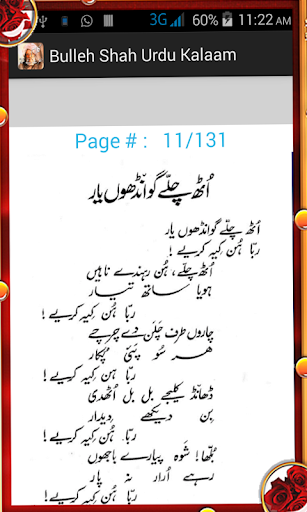 3G 60% 11:22 AM
Bulleh Shah Urdu Kalaam
Page # : 11/131
اُٹھ چلّے گوانڈھوں یار
اُٹھ چلّے گوانڈھوں یار
ربّا ہُن کیہ کریے !
اُٹھ چلّے، ہُن رہندے ناہیں
ہویا ساتھ تیار
ربّا ہُن کیہ کریے !
چاروں طرف چَلن دے چرچے
ہر سُو پَئی پُکار
ربّا ہُن کِیہ کریے !
ڈھانڈ کلیجے بل بل اُٹھدی
بِن دیکھے دِیدار
ربّا ہُن کِیہ کریے !
بُلّھا! شَوہ پیارے باجھوں
رہے اُرار نہ پار
ربّا ہُن کِیہ کریے !